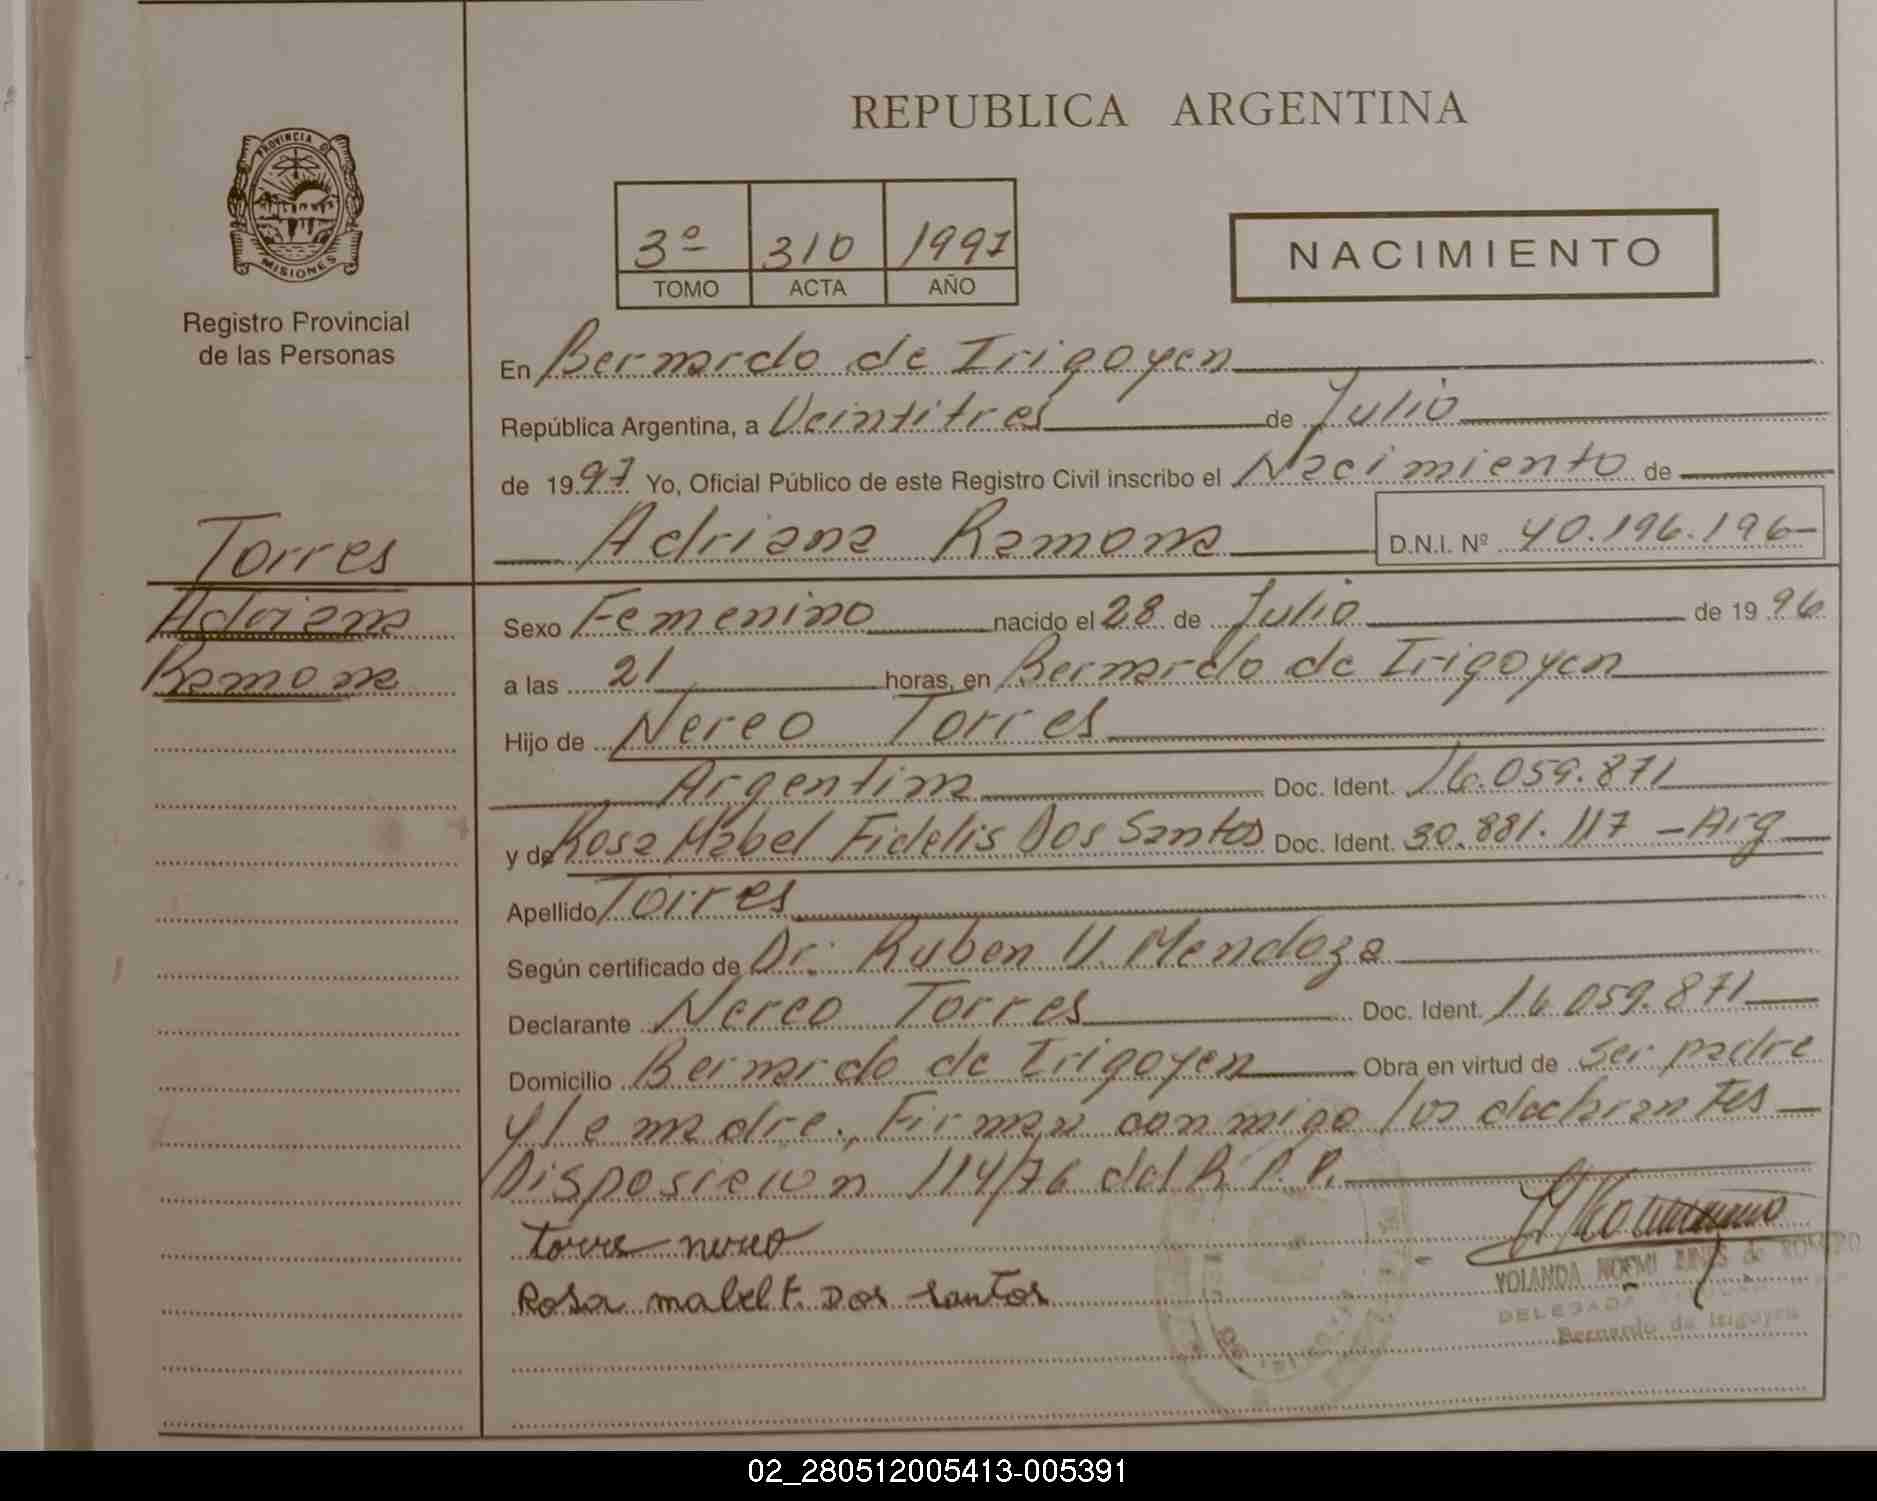 REPUBLICA ARGENTINA
PROVINCIA DE
MISIONES
Registro Provincial
de las Personas
3º 310 1997
TOMO ACTA AÑO
NACIMIENTO
En Bernardo de Irigoyen
República Argentina, a Veintitres de Julio
de 1997 Yo, Oficial Público de este Registro Civil inscribo el Nacimiento de
Adriana Ramona D.N.I. Nº 40.196.196
Torres
Adriana
Ramona
Sexo Femenino nacido el 28 de Julio de 1996
a las 21 horas, en Bernardo de Irigoyen
Hijo de Nereo Torres
Argentina Doc. Ident. 16.059.871
y de Rosa Mabel Fidelis Dos Santos Doc. Ident. 30.881.117 - Arg
Apellido Torres
Según certificado de Dr. Ruben U. Mendoza
Declarante Nereo Torres Doc. Ident. 16.059.871
Domicilio Bernardo de Irigoyen Obra en virtud de ser padre
y la madre. Firman conmigo los declarantes
Disposicion 114/76 del R. P. P.
torre nereo
Rosa mabel f. Dos santos
YOLANDA NOEMI de ROMERO
DELEGADA
Bernardo de Irigoyen
02_280512005413-005391